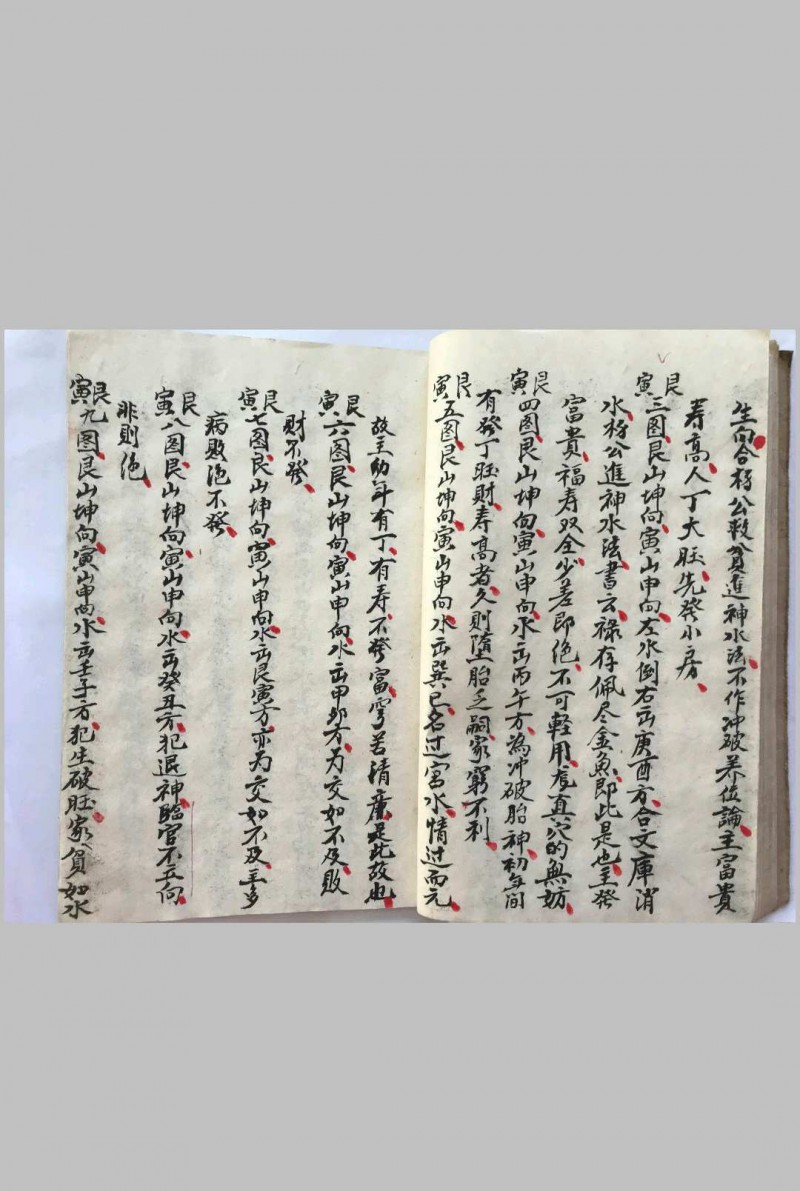 生向合杨公救貧進神水法不作冲破养位論主富貴
寿高人丁大旺先發小房
艮寅三图艮山坤向寅山申向左水倒右出庚酉方合文庫消
水杨公進神水法書云禄存佩尽金魚即此是也主發
富貴福寿双全少差即绝不可輕用龙真穴的無妨
艮寅四图艮山坤向寅山申向水出丙午方為冲破胎神初年间
有發丁旺財寿高者久則堕胎乏嗣家窮不利
艮寅五图艮山坤向寅山申向水出巽巳名过宫水情过而亢
故主幼年有丁有寿不發富窮苦清廉是此故也
艮寅六图艮山坤向寅山申向水出甲卯方为交如不及敗
財不發
艮寅七图艮山坤向寅山申向水出艮寅方亦为交如不及主多
病敗绝不發
艮寅八图艮山坤向寅山申向水出癸丑方犯退神臨官不立向
非則绝
艮寅九图艮山坤向寅山申向水出壬子方犯生破旺家貧如水